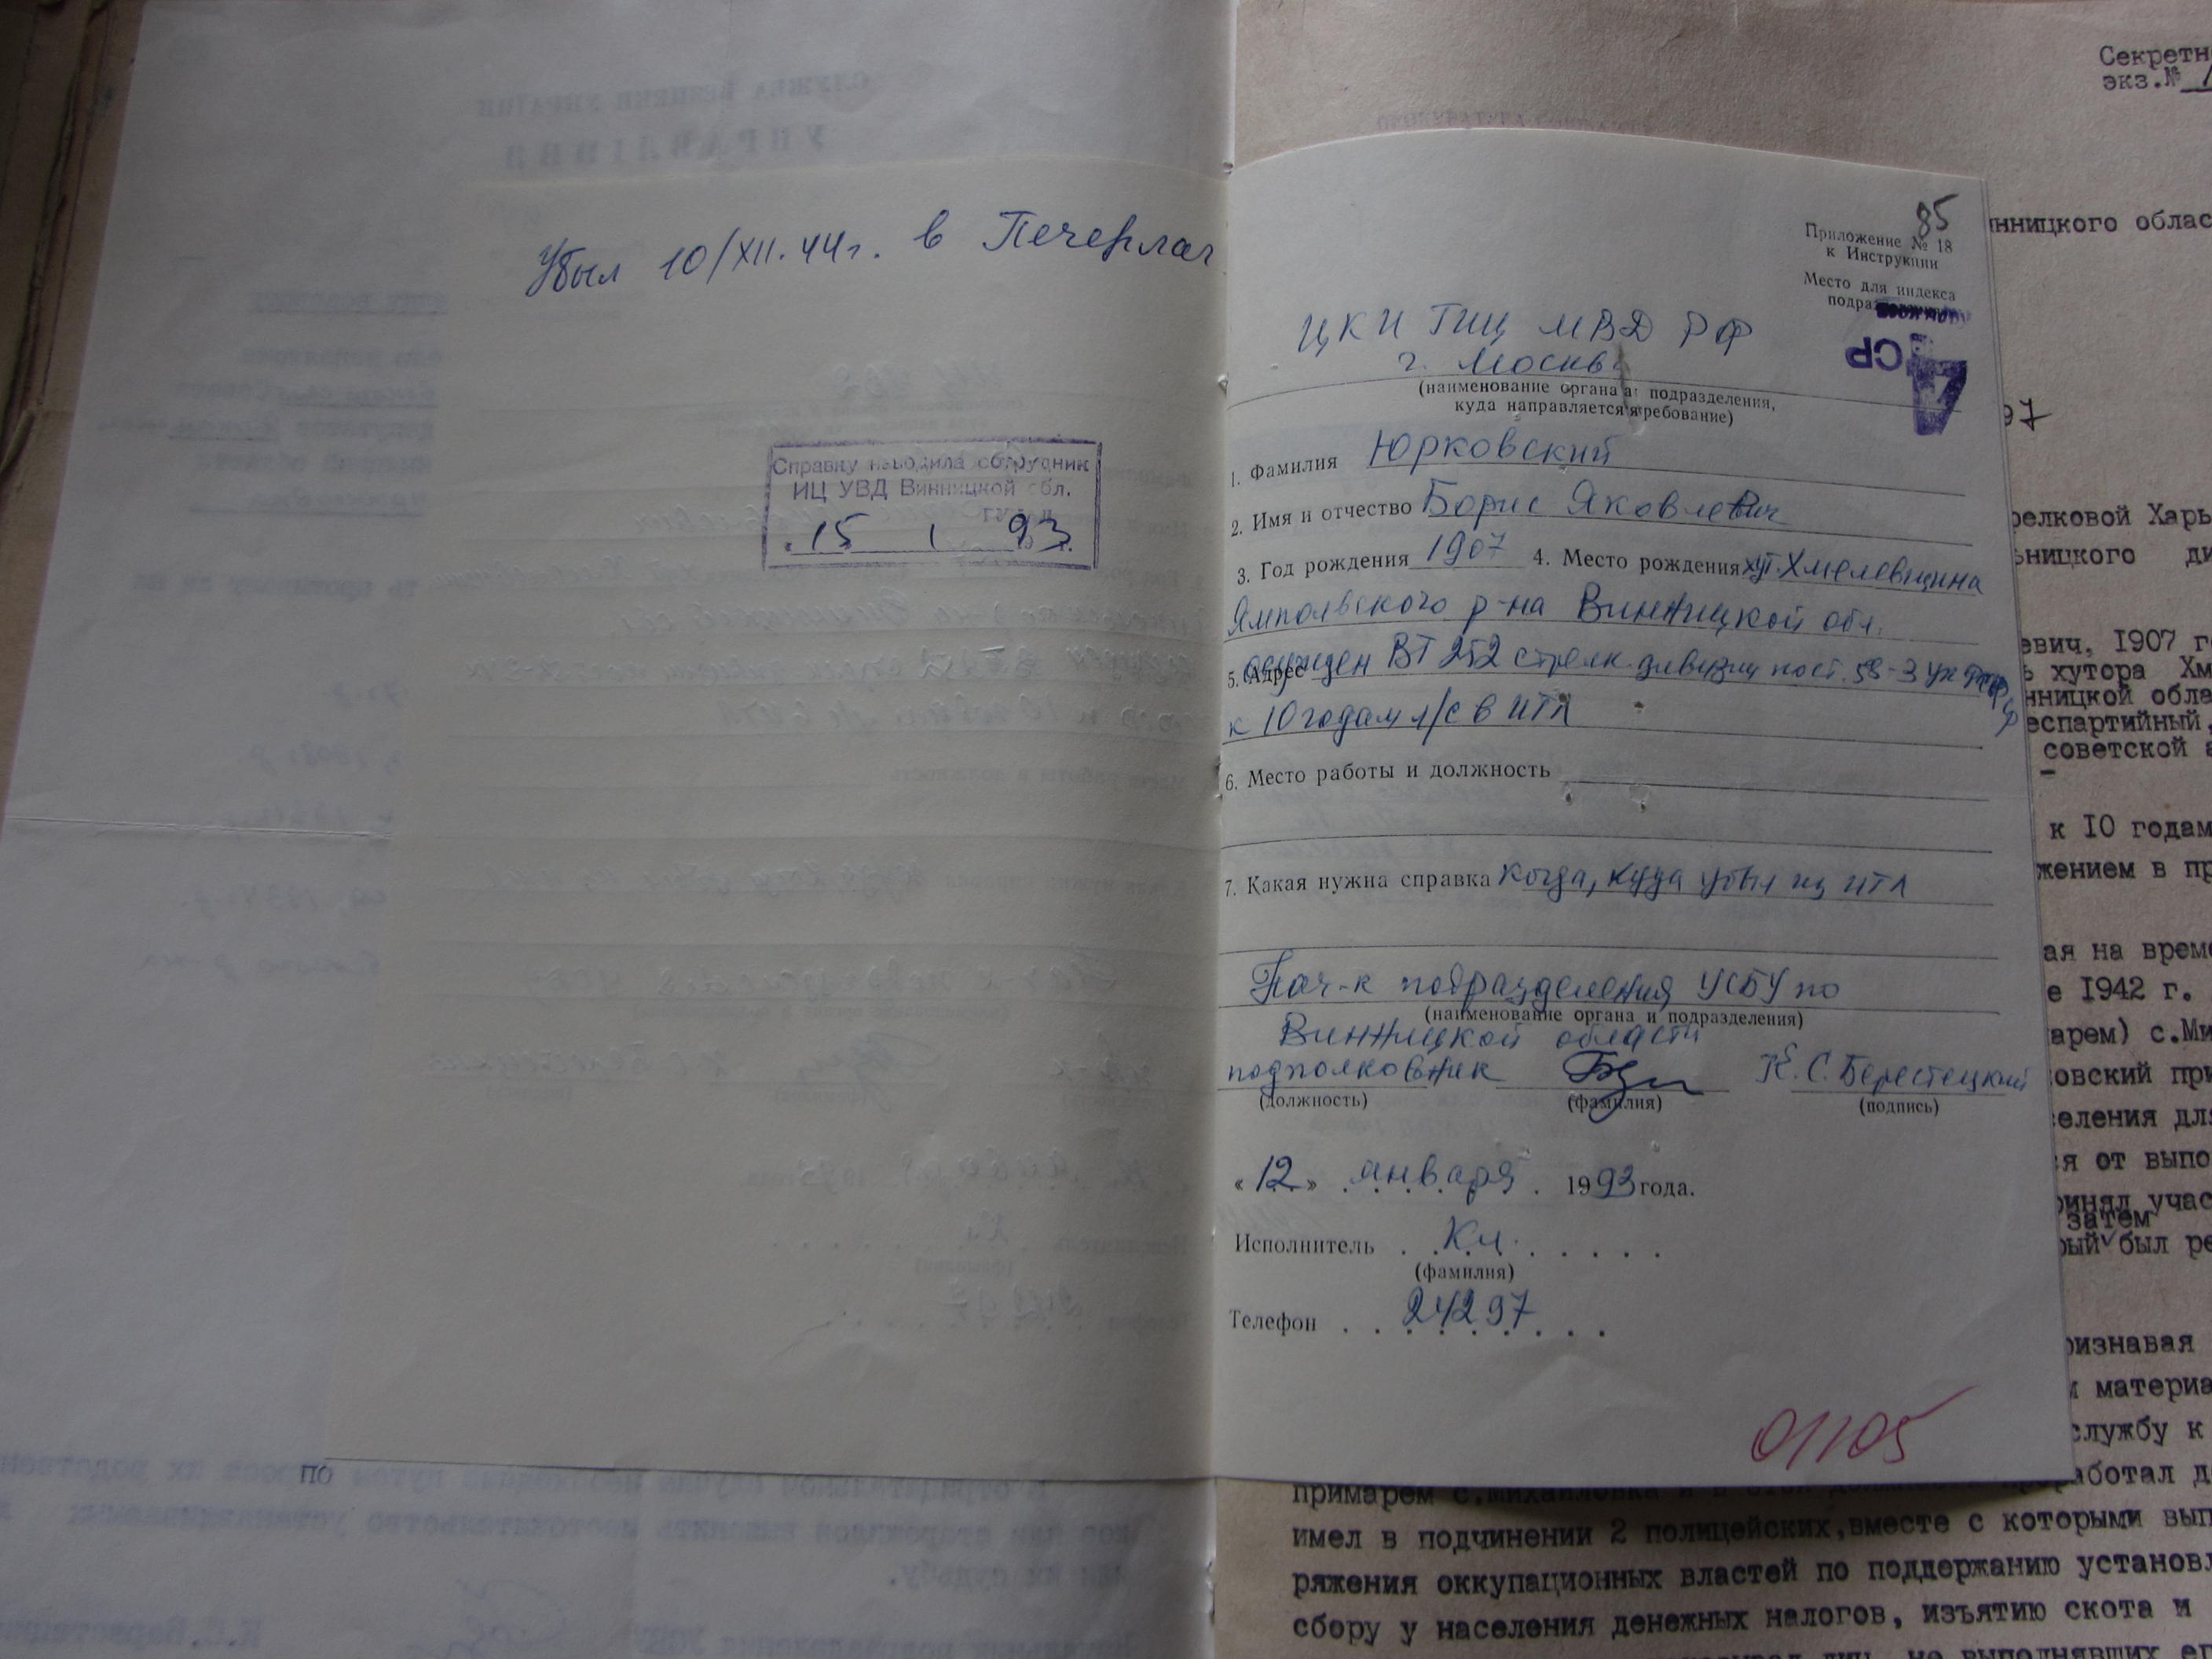 Убыл 10/XII.44г. в Печерлаг
Справку наводила сотрудник
ИЦ УВД Винницкой обл.
15 1 93 г.
по
85
Приложение № 18
к Инструкции
Место для индекса
4 СР
ЦКИ ГИЦ МВД РФ
г. Москва
(наименование органа и подразделения,
куда направляется требование)
1. Фамилия Юрковский
2. Имя и отчество Борис Яковлевич
3. Год рождения 1907 4. Место рождения хут. Хмелевщина
Ямпольского р-на Винницкой обл.
5. Адрес осужден ВТ 252 стрелк. дивизии по ст. 58-3 УК
к 10 годам л/с в ИТЛ
6. Место работы и должность
7. Какая нужна справка когда, куда убыл из ИТЛ
Нач-к подразделения УСБУ по
(наименование органа и подразделения)
Винницкой области
подполковник К.С. Берестецкий
(должность) (фамилия) (подпись)
«12» января 1993 года.
Исполнитель Кл.
(фамилия)
Телефон 24297
01105
Секретн
экз.№ 1
нницкого облас
97
релковой Харь
ьницкого ди
евич, 1907 г
ь хутора Хм
нницкой обла
еспартийный,
советской а
к 10 годам
жением в пр
ая на врем
е 1942 г.
арем) с.Ми
овский при
селения дл
я от выпо
ринял учас
затем
рый был ре
ризнавая
и материа
службу к
примарем с.Михайловка и в этой должности проработал д
имел в подчинении 2 полицейских,вместе с которыми вып
ряжения оккупационных властей по поддержанию установл
сбору у населения денежных налогов, изъятию скота и
лиц, не выполнявших ег